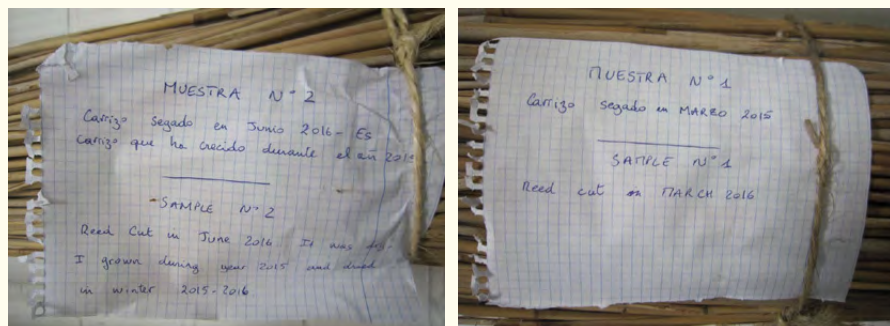 MUESTRA Nº 2
Carrizo segado en Junio 2016- Es
Carrizo que ha crecido durante el añ
SAMPLE Nº 2
Reed Cut in June 2016. It was
I grown during year 2015 and dried
in winter 2015-2016.
MUESTRA Nº 1
Carrizo segado en MARZO 2015
SAMPLE Nº 1
Reed cut on MARCH 2016